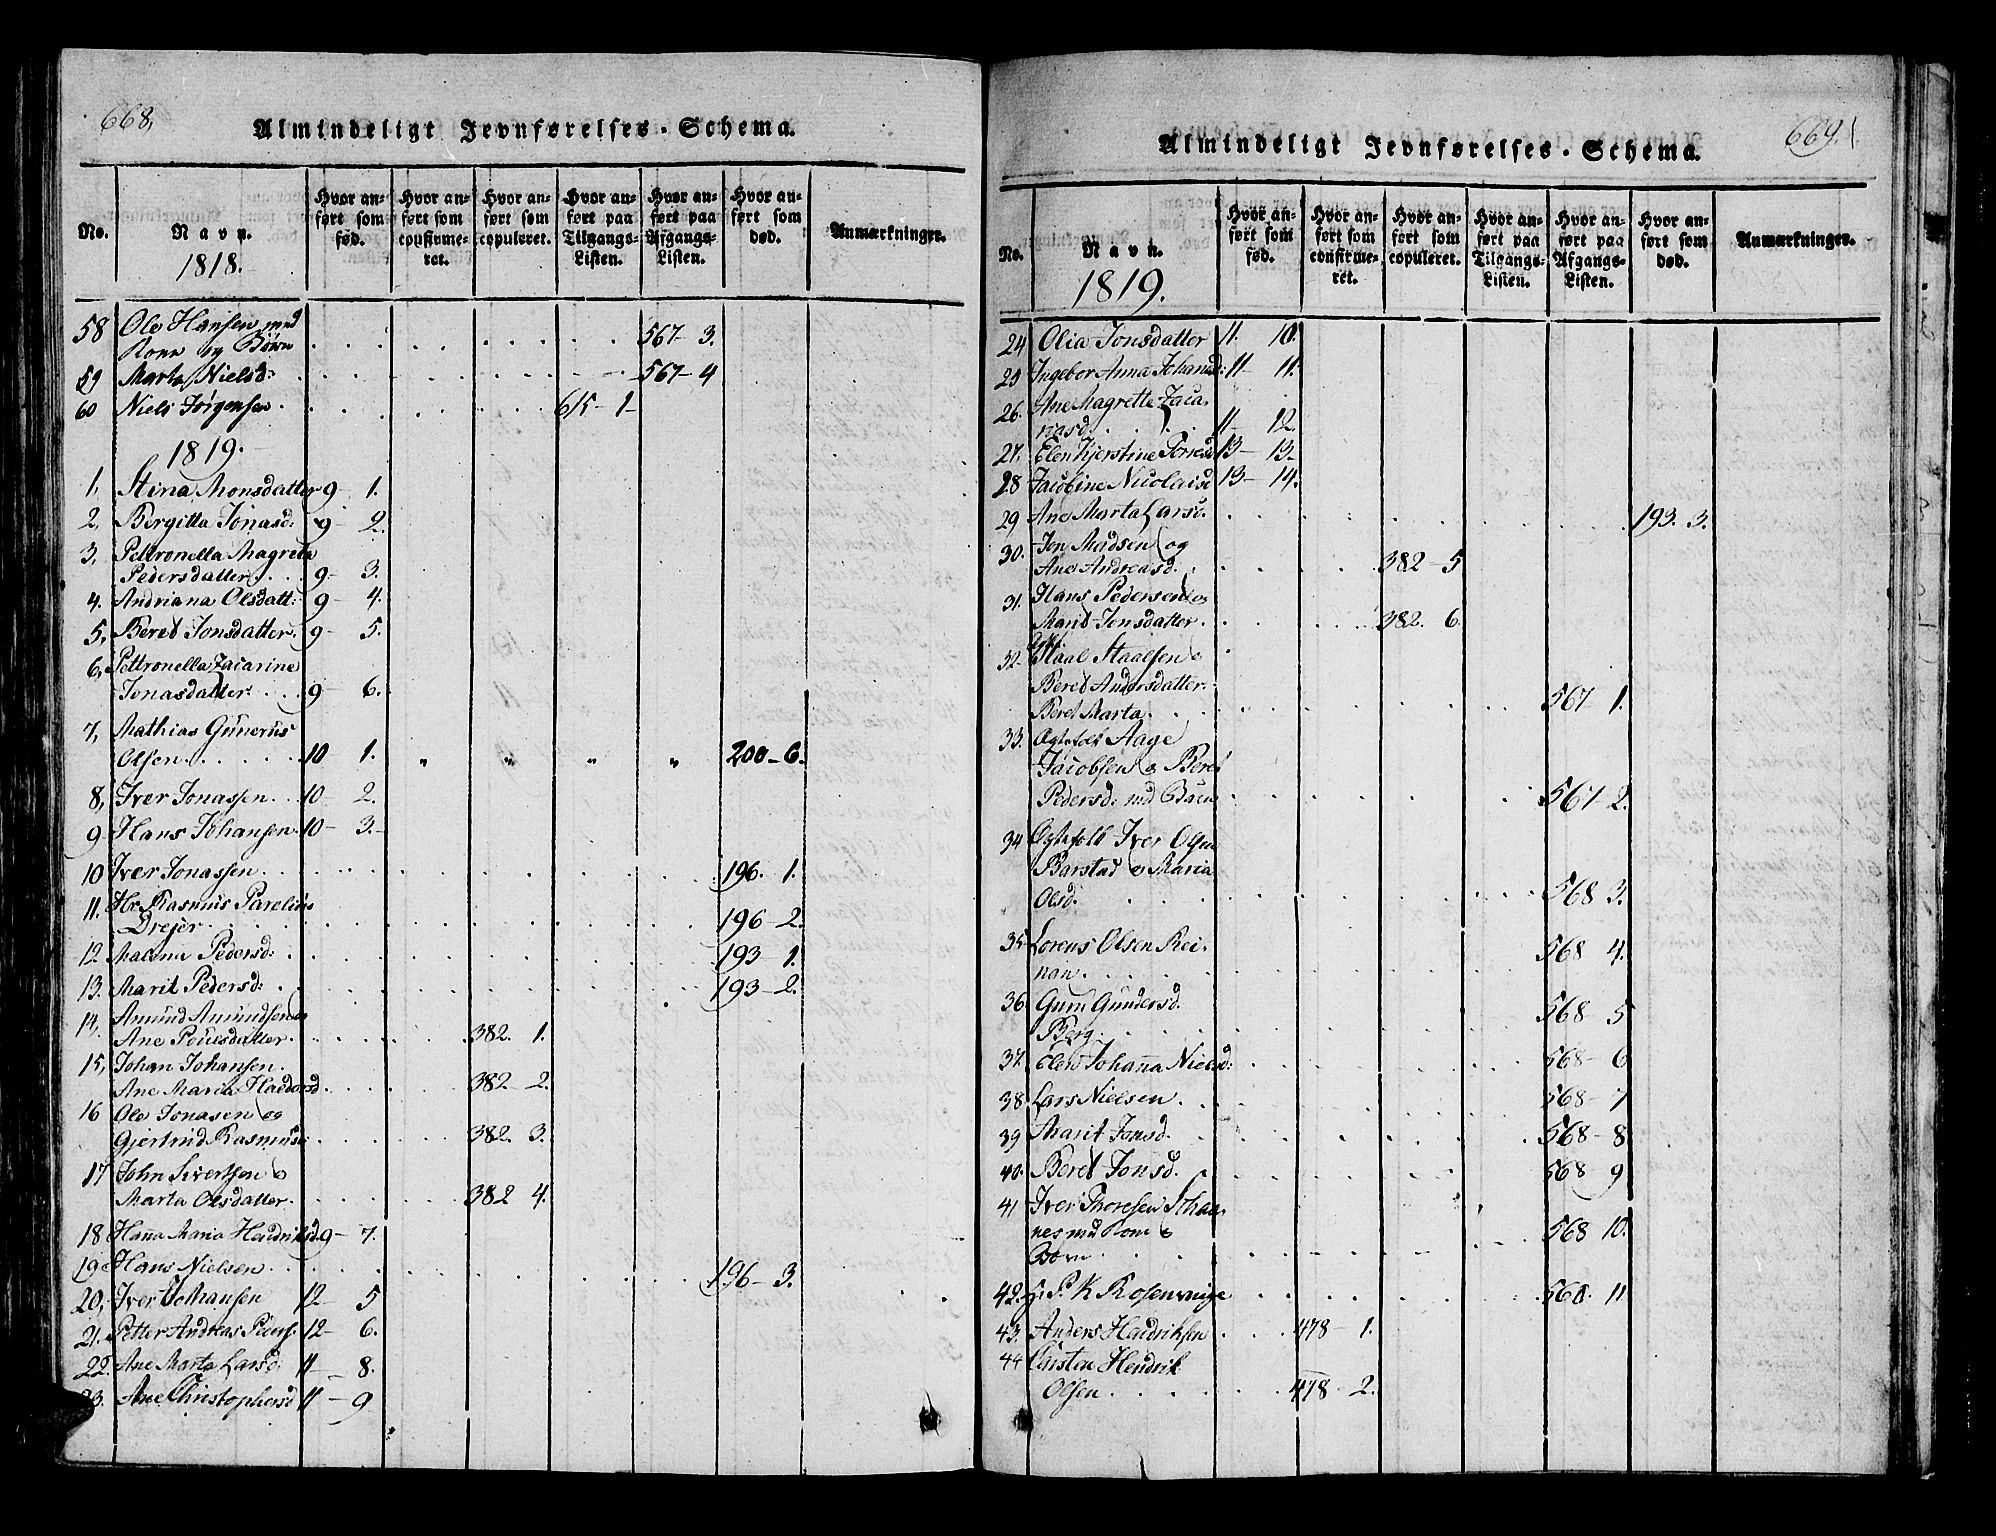 668.
Almindeligt Jevnførelses-Schema.
No.
Navn.
1818.
Hvor anført som fød.
Hvor anført som confirmeret.
Hvor anført som copuleret.
Hvor anført paa Tilgangs-Listen.
Hvor anført paa Afgangs-Listen.
Hvor anført som død.
Anmærkninger.
58 Ole Hansen med
Kone og Børn 567- 3.
59 Marta Nielsd: 567- 4
60 Niels Jørgensen 615- 1-
1819.
1, Stina Monsdatter 9 1.
2, Bergitta Jonasd: 9- 2.
3, Pettronella Magreta
Pedersdatter 9- 3.
4. Andriana Olsdatt: 9- 4.
5, Beret Jonsdatter. 9- 5.
6, Pettronella Zacarine
Jonasdatter 9 6.
7, Mathias Gunerus
Olsen 10 1. " " " " 200-6.
8, Iver Jonassen 10- 2.
9 Hans Johansen 10- 3.-
10 Iver Jonassen 196. 1.
11. Hr Rasmus Parelius
Drejer 196-2.
12 Malena Pedersd: 193- 1.
13. Marit Pedersd: 193-2.
14, Amund Amundsen og
Ane Pouelsdatter 382. 1.
15, Johan Johansen.
Ane Maria Haldorsd 382 2.
16 Ole Jonasen og
Gjertrud Rasmusd: 382. 3.
17 John Sivertsen o
Marta Olsdatter. 382 4.
18 Hanna Maria Hendriksd 9- 7.
19 Hans Nielsen 196-3.
20, Iver Johansen 12- 5
21. Petter Andreas Peders. 12- 6.
22. Ane Marta Larsd: 11- 8.
23. Ane Christophersd 11- 9
669.
Almindeligt Jevnførelses-Schema.
No.
Navn.
1819.
Hvor anført som fød.
Hvor anført som confirmeret.
Hvor anført som copuleret.
Hvor anført paa Tilgangs-Listen.
Hvor anført paa Afgangs-Listen.
Hvor anført som død.
Anmærkninger.
24 Olia Jonsdatter 11. 10.
25 Ingebor Anna Johansd: 11- 11.
26. Ane Magrette Zaca-
riasd. 11- 12.
27. Elen Kjerstine 13- 13-
28 Jacobine Nicolaisd 13- 14.
29 Ane Marta Larsd. 193. 3.
30. Jon Madsen og
Ane Andreasd. 382-5
31. Hans Pedersen og
Marit Jonsdatter. 382. 6.
32- Staal Staalsen o
Beret Andersdatter.
Beret Marta. 567 1.
33. Egtefolk Aage
Jacobsen o Beret
Pedersd: med Barn 567 2.
34 Egtefolk Iver Olsen
Barstad o Maria
Olsd. 568 3.
35 Lorens Olsen Rei-
nan. 568 4.
36 Guru Gundersd.
Berg. 568 5
37. Elen Johanna Nielsd: 568- 6
38. Lars Nielsen 568- 7
39 Marit Jonsd. 568- 8
40. Beret Jonsd. 568 9
41 Iver Thoresen
nes med Kone o
Børn 568 10.
42. Hr. P. K. Rosenvinge 568. 11
43. Anders Hendriksen 478- 1.
44 Carsten Hendrik
Olsen 478- 2.